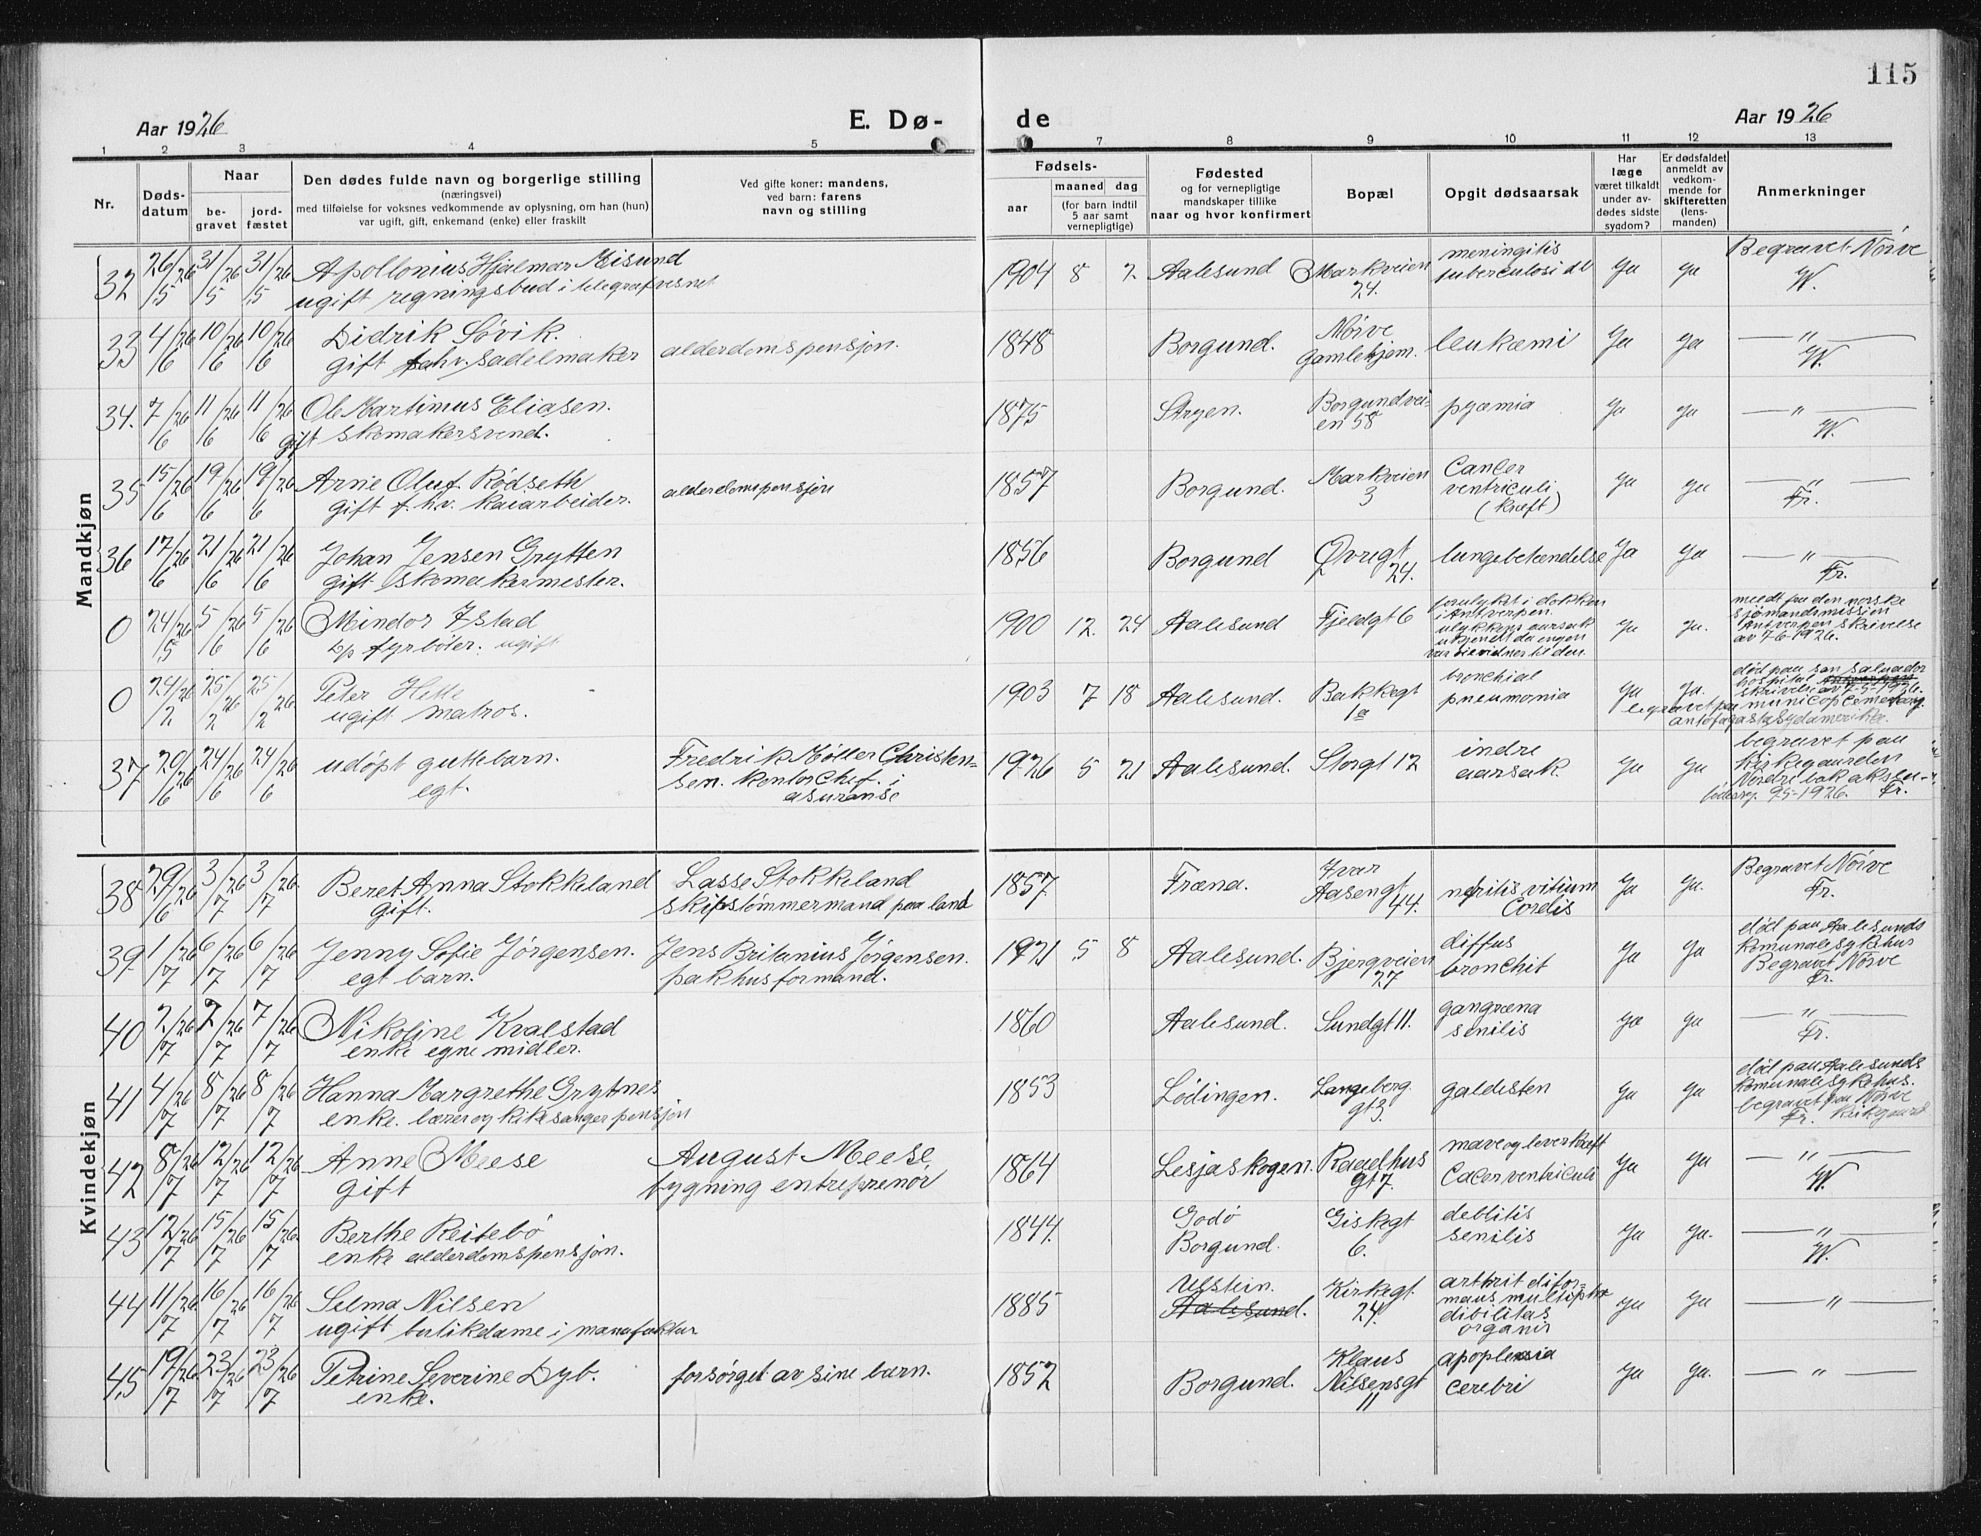 115
Aar 1926
E. Dø-
de
Aar 1926
1 2 3 4 5 7 8 9 10 11 12 13
Nr.
Døds-
datum
Naar
be-
gravet
jord-
fæstet
Den dødes fulde navn og borgerlige stilling
(næringsvei)
med tilføielse for voksnes vedkommende av oplysning, om han (hun)
var ugift, gift, enkemand (enke) eller fraskilt
Ved gifte koner: mandens,
ved barn: farens
navn og stilling
Fødsels-
aar
maaned dag
(for barn indtil
5 aar samt
vernepligtige)
Fødested
og for vernepligtige
mandskaper tillike
naar og hvor konfirmert
Bopæl
Opgit dødsaarsak
Har
læge
været tilkaldt
under av-
dødes sidste
sygdom?
Er dødsfaldet
anmeldt av
vedkom-
mende for
skifteretten
(lens-
manden)
Anmerkninger
Mandkjøn
32 26/5 26 31/5 26 31/5 26 Apollonius Hjalmar Misund
ugift regningsbud i telegrafvesnet
1904 8 2 Aalesund Markveien
24.
meningitis
tuberculosi
ja ja Begravet Nörve
W.
33 4/6 26 10/6 26 10/6 26 Didrik Sövik.
gift fahv. sadelmaker alderdomspensjon.
1848 Borgund. Nörve
Gamlehjem. leukæmi ja ja — " —
W.
34. 7/6 26 11/6 26 11/6 26 Ole Martimus Eliasen.
gift skomakersvend.
1875 Stryen. Borgundvei-
en 58 pyæmia ja ja — " —
W.
35 15/6 26 19/6 26 19/6 26 Arne Oluf Rödseth
gift f. hv. kaiarbeider. alderdomspensjon
1857 Borgund. Markveien
3
Cancer
ventriculi
(kræft)
ja ja — " —
Fr.
36 17/6 26 21/6 26 21/6 26 Johan Jensen Grytten
gift skomakermester.
1856 Borgund Øvregt
24. lungebetændelse Ja ja — " —
Fr.
0 24/5 26 5/6 26 5/6 26 Mindor Istad
fyrböter. ugift
1900 12. 24 Aalesund Fjeldgt 6
forulyket i dokken
i Antverpen.
ulykkens aarsak
ukjendt da ingen
var vidner til den.
ja ja.
medt fra den norske
sjömandsmission
Antverpen skrivelse
av 7-6-1926.
0 24/2 26 25/2 26 25/2 26 Peter Hette
ugift matros.
1903 7 18 Aalesund. Bakkegt
1a
bronchial
pneumonia
ja ja.
död paa san salvador
hospital
skrivelse av 7-5-1926.
begravet paa
antofagasta sydamerika.
37 20/6 26 24/6 26 24/6 26 udöpt guttebarn.
egt.
Fredrik Möller Christen-
sen. kontorchef i
asuranse
1926 5 21 Aalesund. Storgt 12 indre
aarsak. ja ja
begravet paa
kirkegaarden
Nordre
95-1926. Fr.
Kvindekjøn
38 29/6 26 3/7 26 3/7 26 Beret Anna Stokkeland
gift.
Lasse Stokkeland
skipstömmermand paa land
1857. Fræna. Ivar
Aasengt
44.
nefritis vitium
Cordis
ja ja. Begravet Nörve
Fr.
39. 1/7 26 6/7 26 6/7 26 Jenny Sofie Jørgensen.
egt barn.
Jens Britanius Jørgensen.
pakhusformand.
1921 5 8 Aalesund. Bjergveien
27
diffus
bronchit
ja ja
död paa Aalesunds
komunale sykehus
Begravet Nörve
Fr.
40 2/7 26 7/7 26 7/7 26 Nikoline Kvalstad
enke egne midler.
1860 Aalesund. Sundgt 11. gangræna
senilis ja ja — " —
Fr.
41 4/7 26 8/7 26 8/7 26 Hanna Margrethe Grytnes
enke. lærer og kirkesanger pensjon
1853 Lödingen. Langeberg
gt 3. galdesten ja ja
död paa Aalesunds
komunale sykehus.
begravet paa Nörve
Fr. kirkegaard
42 8/7 26 12/7 26 12/7 26 Anne Meese
gift
August Meese
bygning entreprenör
1864 Lesjaskogen. Raadhus
gt 7.
mave og leverkræft
Cacer ventriculi
ja ja — " —
W.
43 12/7 26 15/7 26 15/7 26 Berthe Reitebö
enke alderdomspensjon.
1844. Godö
Borgund. Giskegt
6. deblitis
senilis ja ja. — " —
W.
44 11/7 26 16/7 26 16/7 26 Selma Nilsen
ugift butikdame i manufaktur
1885 Ulstein.
Aalesund. Kirkegt.
24.
artrit difor-
mans multiplex
dibilitas
organir
ja ja — " —
45 19/7 26 23/7 26 23/7 26 Petrine Severine Dyb.
enke. forsörget av sine barn.
1852 Borgund. Klaus
Nilsensgt
11 apoplexia
cerebri ja ja. — " —